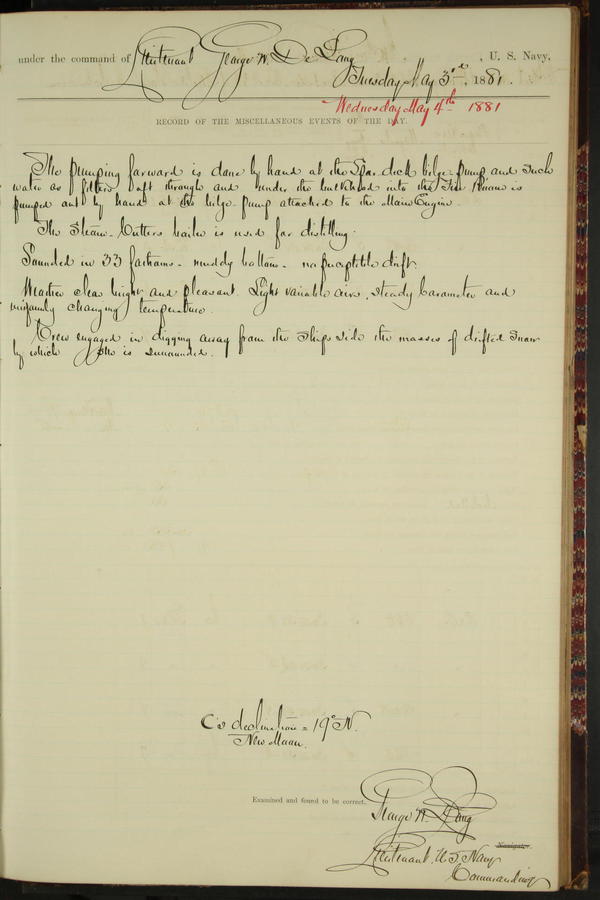 under the command of Lieutenant George W. De Long, U. S. Navy,
Tuesday May 3rd, 1881.
Wednesday May 4th 1881
RECORD OF THE MISCELLANEOUS EVENTS OF THE DAY.
The pumping forward is done by hand at the Spar deck bilge pump and such
water as filters aft through and under the bulkhead into the Fire Room is
pumped out by hand at the bilge pump attached to the Main Engine.
The Steam-Cutters boiler is used for distilling.
Sounded in 33 fathoms - muddy bottom - no perceptible drift.
Weather clear bright and pleasant. Light variable airs, steady barometer and
uniformly changing temperature.
Crew engaged in digging away from the ships side the masses of drifted snow
by which she is surrounded.
C's declination = 19° N.
New Moon.
Examined and found to be correct.
George W. De Long
Navigator.
Lieutenant. U.S. Navy
Commanding